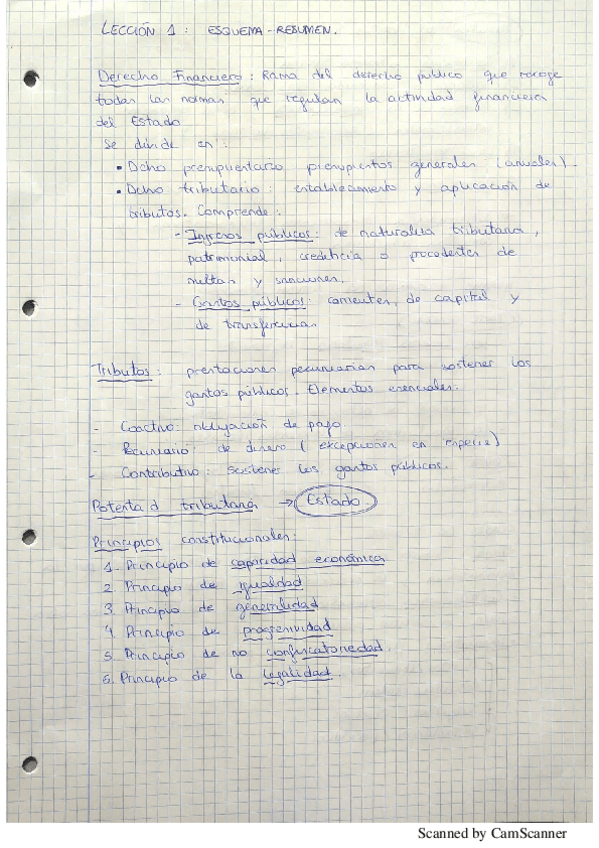 LECCIÓN 1 : ESQUEMA - RESUMEN.
Derecho Financiero : Rama del derecho público que recoge
todas las normas que regulan la actividad financiera
del Estado
Se divide en :
• Dcho presupuestario presupuestos generales (anuales).
• Dcho tributario : establecimiento y aplicación de
tributos. Comprende :
- Ingresos públicos : de naturaleza tributaria,
patrimonial, crediticia o procedentes de
multas y sanciones.
- Gastos públicos : corrientes, de capital y
de transferencias
Tributos : prestaciones pecuniarias para sostener los
gastos públicos. Elementos esenciales:
- Coactivo: obligación de pago
- Pecuniario : de dinero (excepciones en especie)
- Contributivo : sostener los gastos públicos.
Potestad tributaria → Estado
Principios constitucionales :
1. Principio de capacidad económica
2. Principio de igualdad
3. Principio de generalidad
4. Principio de progresividad
5. Principio de no confiscatoriedad.
6. Principio de la legalidad.
Scanned by CamScanner